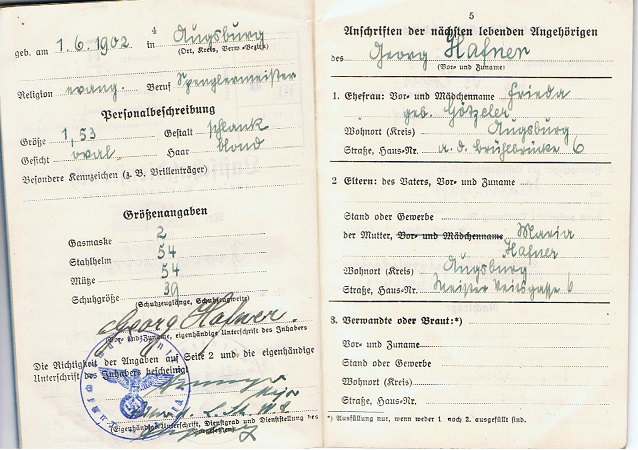 4
geb. am 1.6.1902 in Augsburg
(Ort, Kreis, Verw.-Bezirk)
Religion evang. Beruf Spenglermeister
Personalbeschreibung
Größe 1,53 Gestalt schlank
Gesicht oval Haar blond
Besondere Kennzeichen (z. B. Brillenträger)
Größenangaben
Gasmaske 2
Stahlhelm 54
Mütze 54
Schuhgröße 39
(Schuhzeuglänge, Schuhzeugweite)
Georg Hafner.
(Vor- und Zuname, eigenhändige Unterschrift des Inhabers
Die Richtigkeit der Angaben auf Seite 2 und die eigenhändige
Unterschrift des Inhabers bescheinigt
(Eigenhändige Unterschrift, Dienstgrad und Dienststellung des
5
Anschriften der nächsten lebenden Angehörigen
des Georg Hafner
(Vor- und Zuname)
1. Ehefrau: Vor- und Mädchenname Frieda
geb. Götzeler
Wohnort (Kreis) Augsburg
Straße, Haus-Nr. a. d. Brühlbrücke 6
2 Eltern: des Vaters, Vor- und Zuname
Stand oder Gewerbe
der Mutter, Vor- und Mädchenname Maria
Hafner
Wohnort (Kreis) Augsburg
Straße, Haus-Nr. Meister Veitsgasse 6
3. Verwandte oder Braut:*)
Vor- und Zuname
Stand oder Gewerbe
Wohnort (Kreis)
Straße, Haus-Nr.
*) Ausfüllung nur, wenn weder 1 noch 2. ausgefüllt sind.